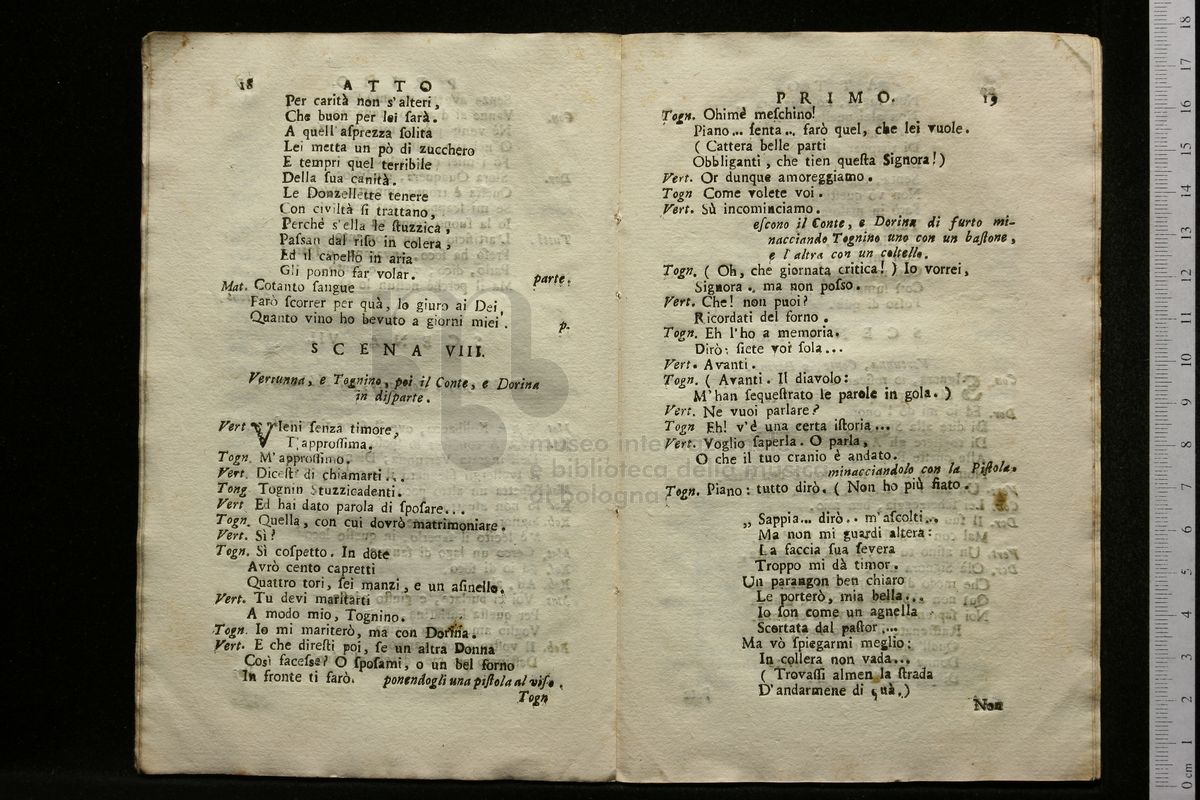 18 ATTO
Per carità non s'alteri,
Che buon per lei sarà.
A quell'asprezza solita
Lei metta un pò di zucchero
E tempri quel terribile
Della sua canità.
Le Donzellette tenere
Con civiltà si trattano,
Perchè s'ella le stuzzica,
Passan dal riso in colera,
Ed il capello in aria
Gli ponno far volar. parte.
Mat. Cotanto sangue
Farò scorrer per quà, lo giuro ai Dei,
Quanto vino ho bevuto a giorni miei. p.
SCENA VIII.
Vertunna, e Tognino, poi il Conte, e Dorina
in disparte.
Vert VIeni senza timore,
T'approssima.
Togn. M'approssimo.
Vert. Dicest' di chiamarti...
Tong Tognin Stuzzicadenti.
Vert Ed hai dato parola di sposare...
Togn. Quella, con cui dovrò matrimoniare.
Vert. Sì?
Togn. Sì cospetto. In dote
Avrò cento capretti
Quattro tori, sei manzi, e un asinello.
Vert. Tu devi maritarti
A modo mio, Tognino.
Togn. Io mi mariterò, ma con Dorina.
Vert. E che diresti poi, se un altra Donna
Così facesse? O sposami, o un bel forno
In fronte ti farò. ponendogli una pistola al viso.
Togn
PRIMO. 19
Togn. Ohimè meschino!
Piano... senta... farò quel, che lei vuole.
( Cattera belle parti
Obbliganti, che tien questa Signora!)
Vert. Or dunque amoreggiamo.
Togn Come volete voi.
Vert. Sù incominciamo.
escono il Conte, e Dorina di furto mi-
nacciando Tognino uno con un bastone,
e l'altra con un coltello.
Togn. ( Oh, che giornata critica! ) Io vorrei,
Signora.. ma non posso.
Vert. Che! non puoi?
Ricordati del forno.
Togn. Eh l'ho a memoria.
Dirò: siete voi sola...
Vert. Avanti.
Togn. ( Avanti. Il diavolo:
M'han sequestrato le parole in gola. )
Vert. Ne vuoi parlare?
Togn Eh! v'è una certa istoria...
Vert. Voglio saperla. O parla,
O che il tuo cranio è andato.
minacciandolo con la Pistola.
Togn. Piano: tutto dirò. ( Non ho più fiato.
„ Sappia... dirò.. m'ascolti...
Ma non mi guardi altera:
La faccia sua severa
Troppo mi dà timor.
Un parangon ben chiaro
Le porterò, mia bella...
Io son come un agnella
Scortata dal pastor....
Ma vò spiegarmi meglio:
In collera non vada...
( Trovassi almen la strada
D'andarmene di quà.)
Non
museo
e biblioteca della musica
di bologna
0 cm 1 2 3 4 5 6 7 8 9 10 11 12 13 14 15 16 17 18